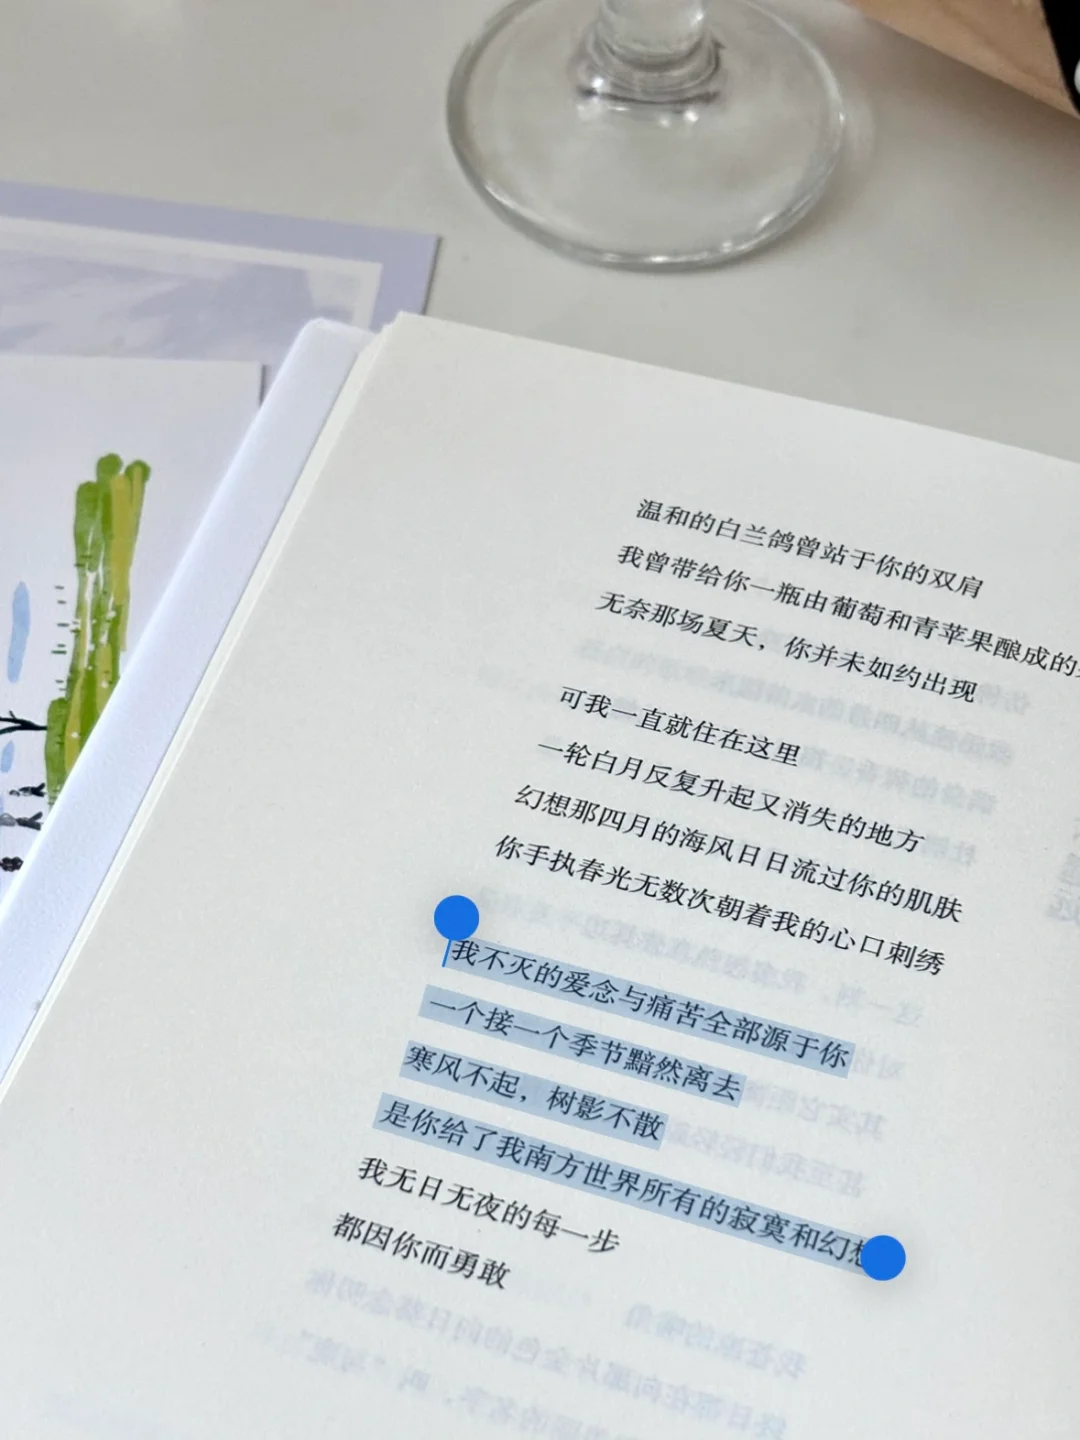 温和的白兰鸽曾站于你的双肩
我曾带给你一瓶由葡萄和青苹果酿成的
无奈那场夏天，你并未如约出现
可我一直就住在这里
一轮白月反复升起又消失的地方
幻想那四月的海风日日流过你的肌肤
你手执春光无数次朝着我的心口刺绣
我不灭的爱念与痛苦全部源于你
一个接一个季节黯然离去
寒风不起，树影不散
是你给了我南方世界所有的寂寞和幻想
我无日无夜的每一步
都因你而勇敢